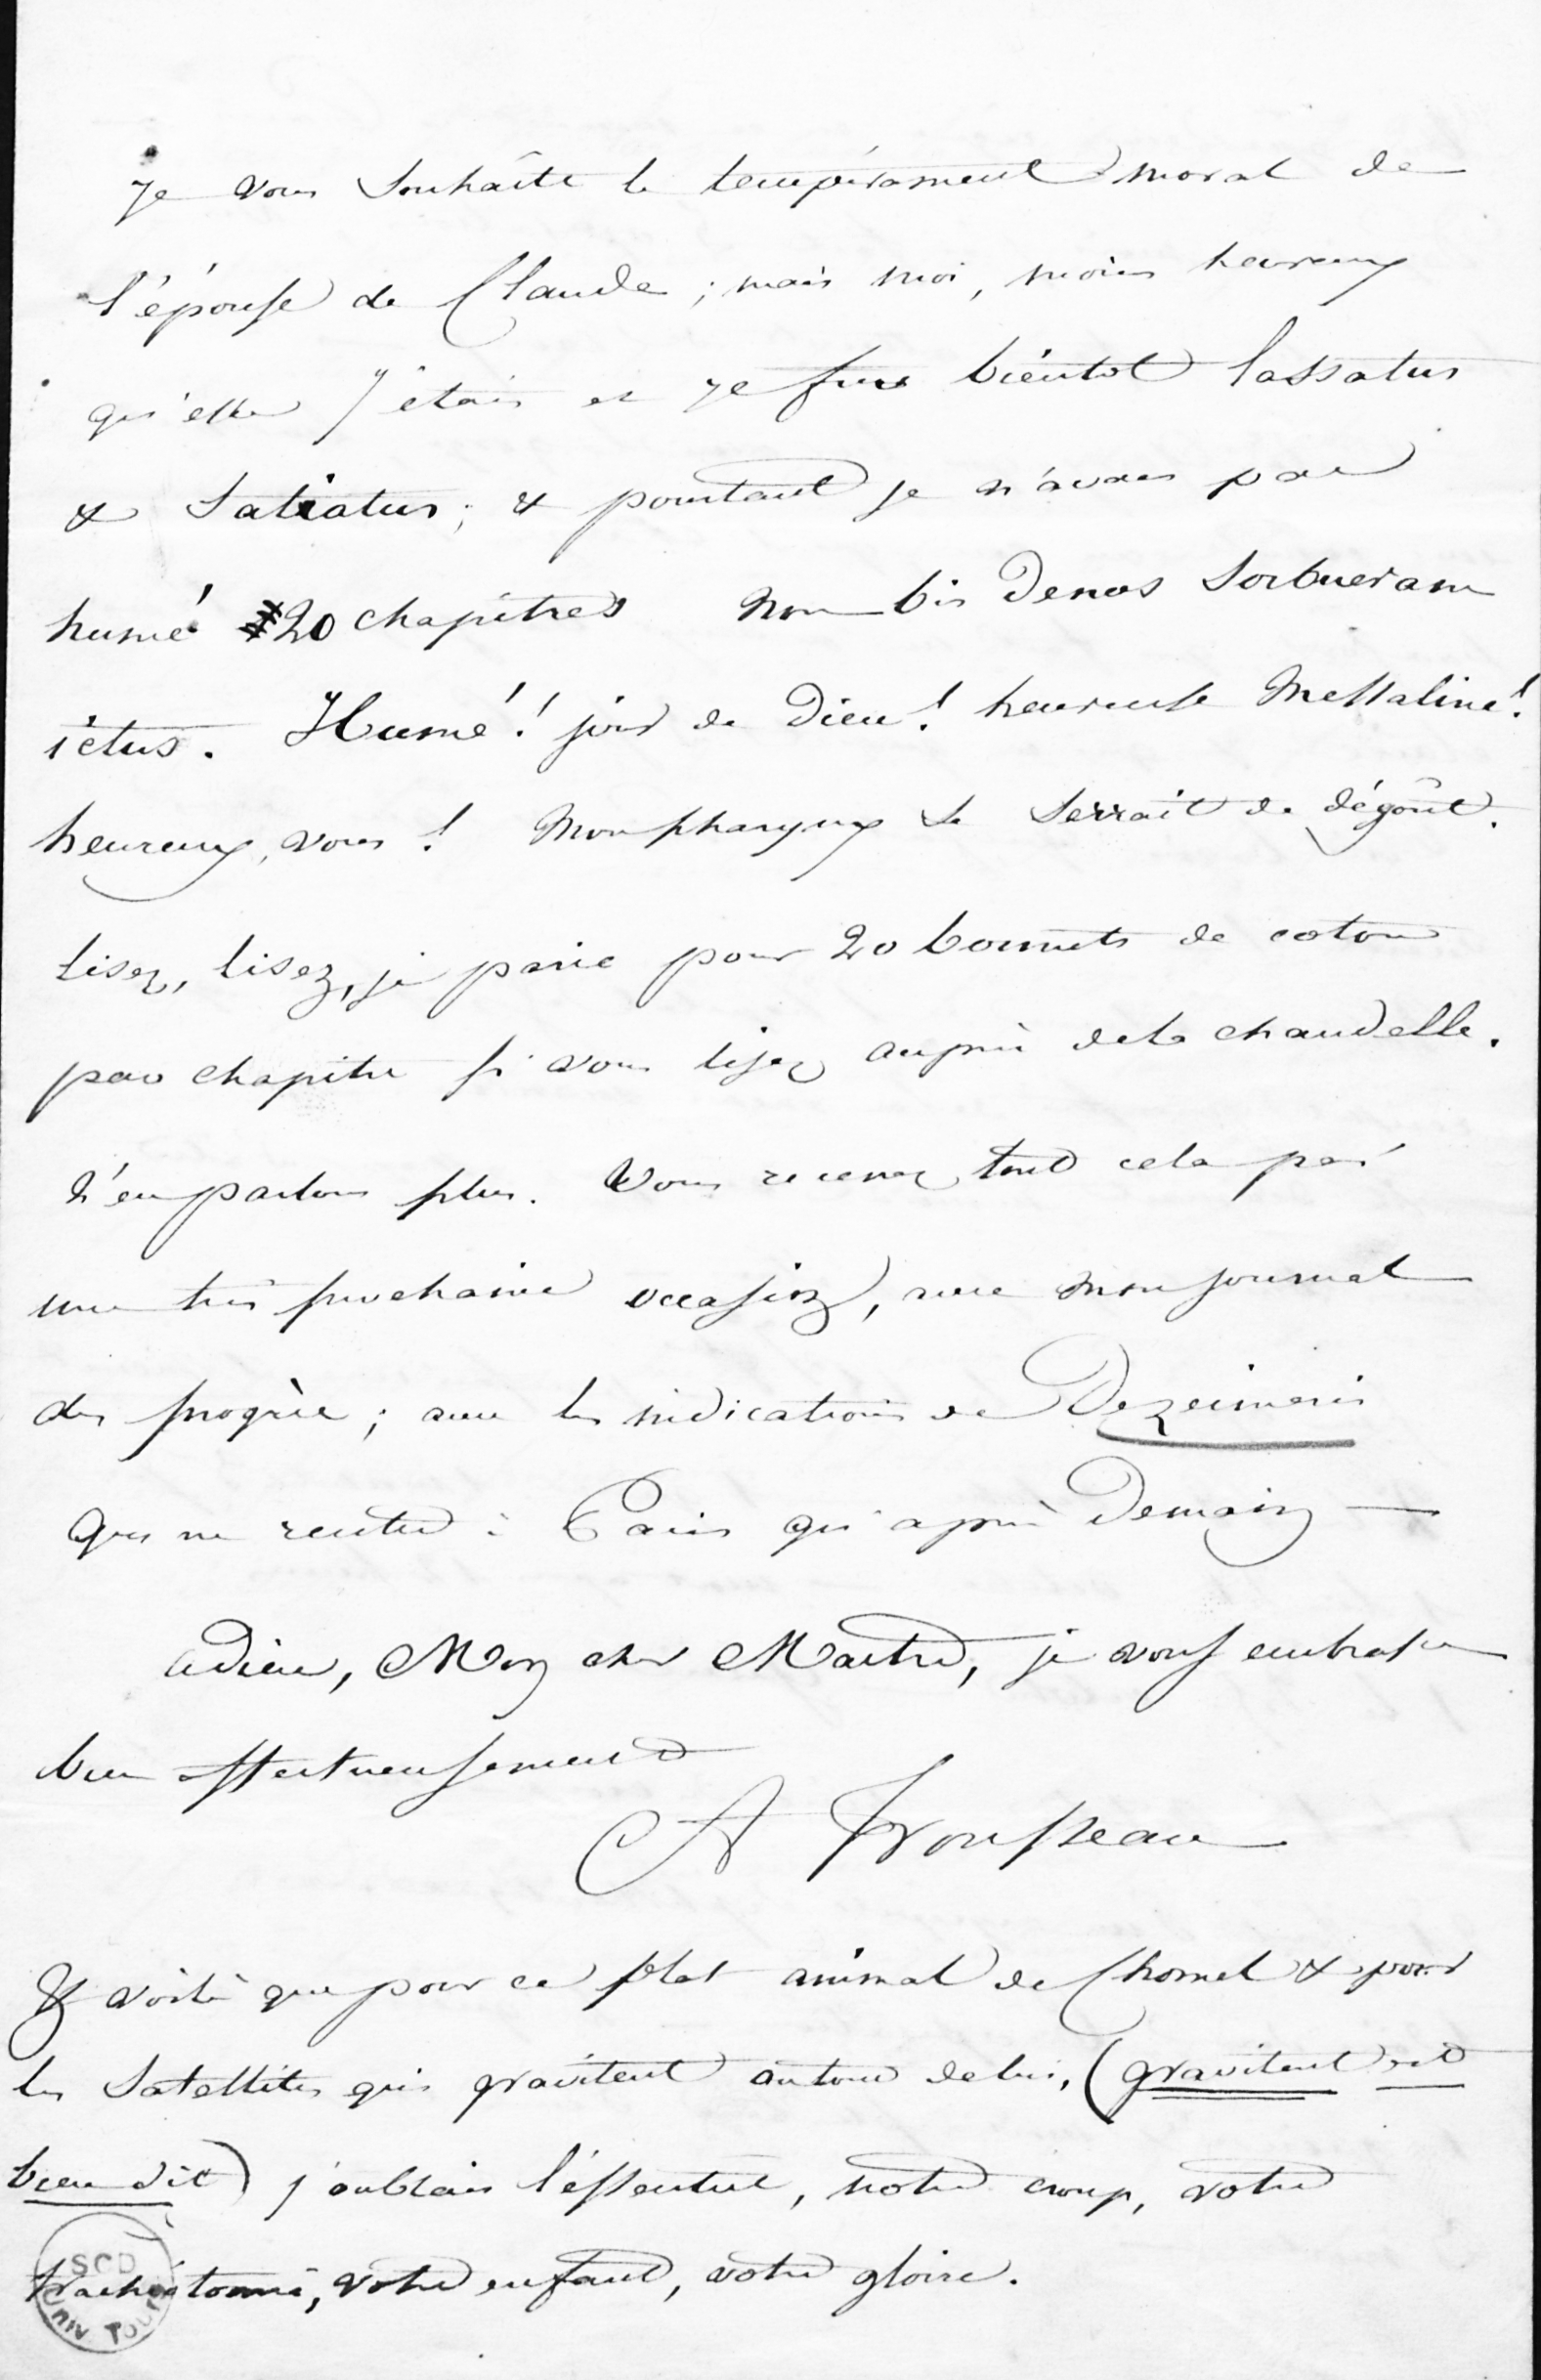 Je vous souhaite le tempérament moral de
l'épouse de Claude ; mais moi, moins heureux
qu'elle j'étais et je fus bientot lassatus
& satiatus ; & pourtant je n'avais pas
humé 20 chapitres non bis denos sorbueram
ictus. Humé ! jour de Dieu ! heureuse Messaline !
heureux, vous ! Mon pharynx se serrait de dégoût.
lisez, lisez, je parie pour 20 bonnets de coton
par chapitre si vous lisez auprès de la chandelle.
N'en parlons plus. Vous recevrez tout cela par
une très prochaine occasion, avec mon journal
des progrès ; avec les indications de Dezeimeris
qui ne rentre à Paris qu'après Demain —
adieu, Mon cher Maitre, je vous embrasse
bien affectueusement
A Trousseau
Et voilà que pour ce plat animal de Chomel & pour
les Satellites qui gravitent autour de lui, (gravitent est
bien dit) j'oubliais l'essentiel, notre croup, votre
trachéotomie, votre enfant, votre gloire.
SCD
UNIV TOURS